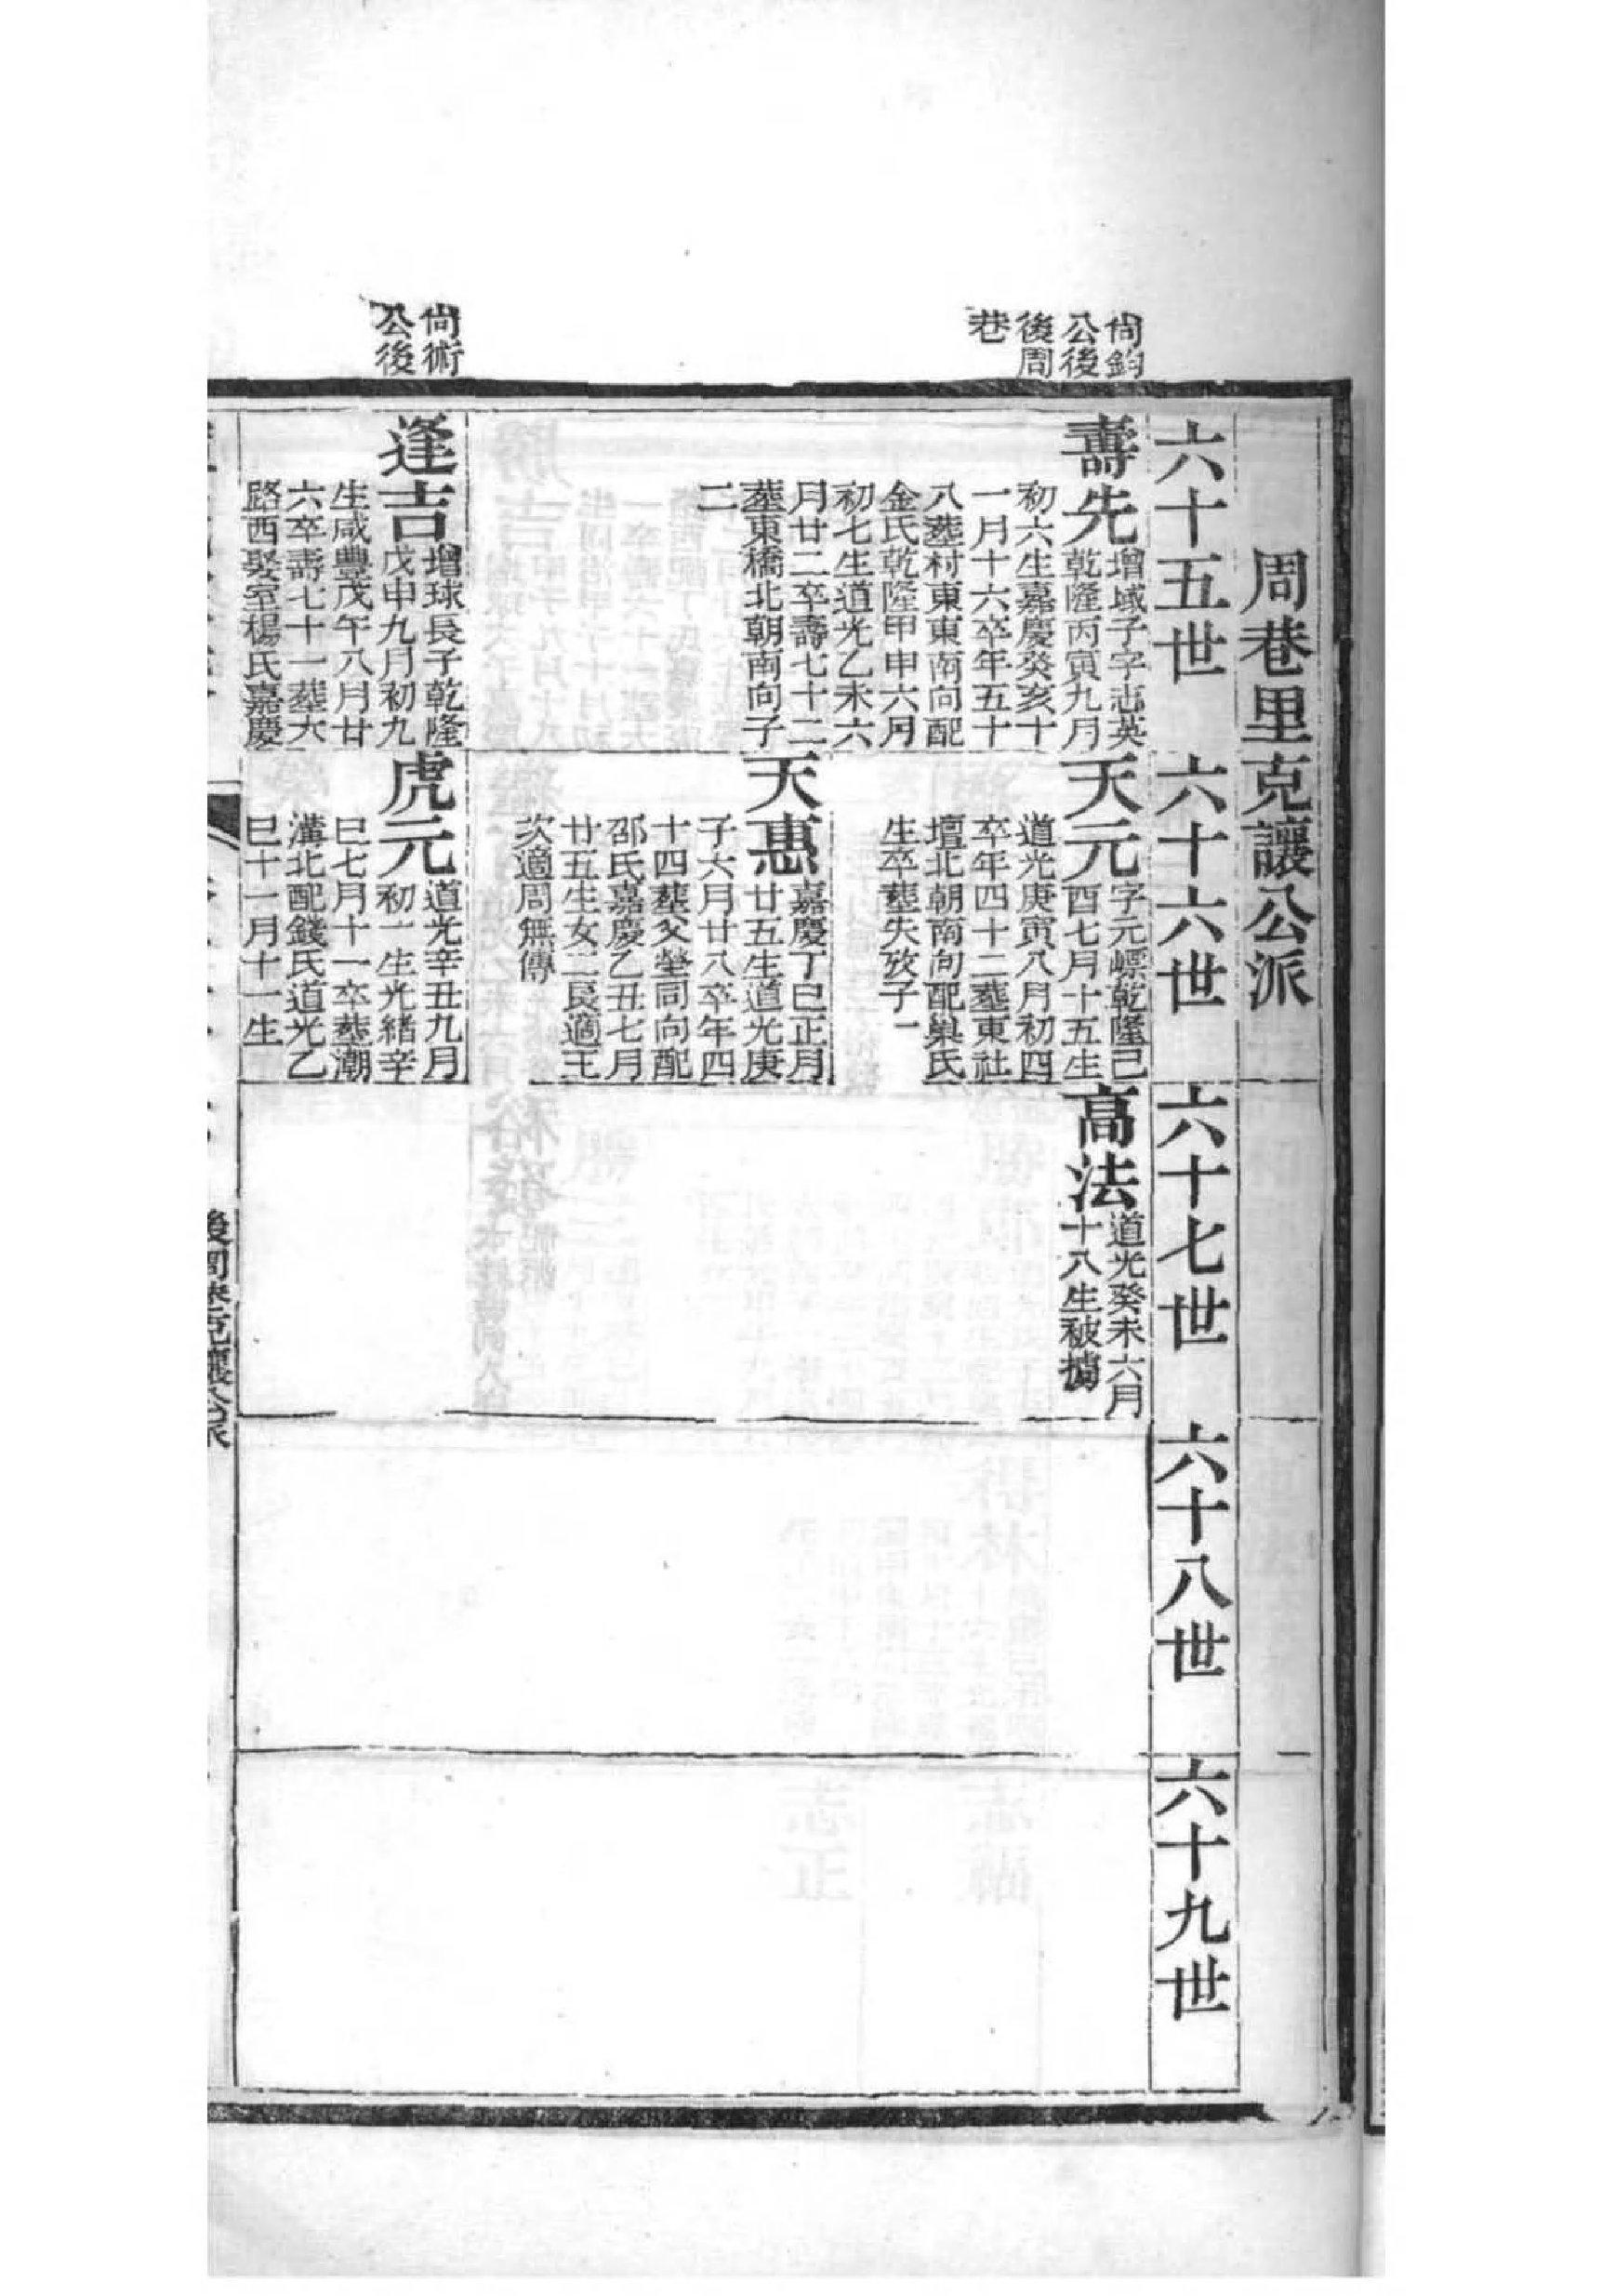 周巷里克讓公派
六十五世
六十六世
六十七世
六十八世
六十九世
尙鈞
公後
後周
巷
壽先
增域子字志英
乾隆丙寅九月
初六生嘉慶癸亥十
一月十六卒年五十
八葬村東東南向配
金氏乾隆甲申六月
初七生道光乙未六
月廿二卒壽七十二
葬東橋北朝南向子
二
天元
字元嶫乾隆己
酉七月十五生
道光庚寅八月初四
卒年四十二葬東社
壇北朝南向配巢氏
生卒葬失攷子一
高法
道光癸未六月
十八生被擄
天惠
嘉慶丁巳正月
廿五生道光庚
子六月廿八卒年四
十四葬父塋同向配
邵氏嘉慶乙丑七月
廿五生女二長適王
次適周無傳
尙術
公後
逢吉
增球長子乾隆
戊申九月初九
生咸豐戊午八月廿
六卒壽七十一葬大
路西娶室楊氏嘉慶
虎元
道光辛丑九月
初一生光緒辛
巳七月十一卒葬潮
溝北配錢氏道光乙
巳十一月十一生